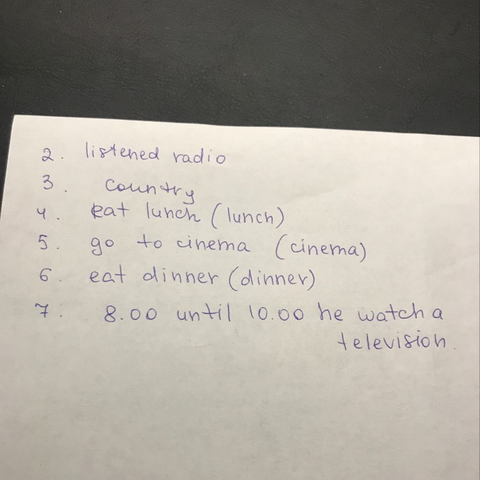 2. listened radio
3. country
4. eat lunch (lunch)
5. go to cinema (cinema)
6. eat dinner (dinner)
7. 8.00 until 10.00 he watch a
television.